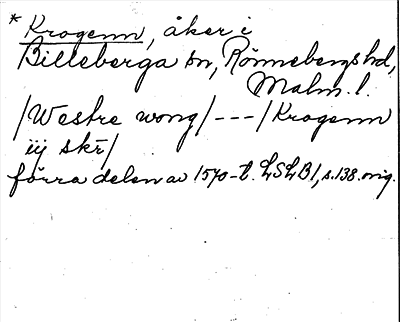 * Krogenn, åker i
Billeberga sn, Rönnebergs hd,
Malm. l.
/Westre wong/ --- /Krogenn
iij skr/
förra delen av 1570-t. LSLB1, s. 138. orig.